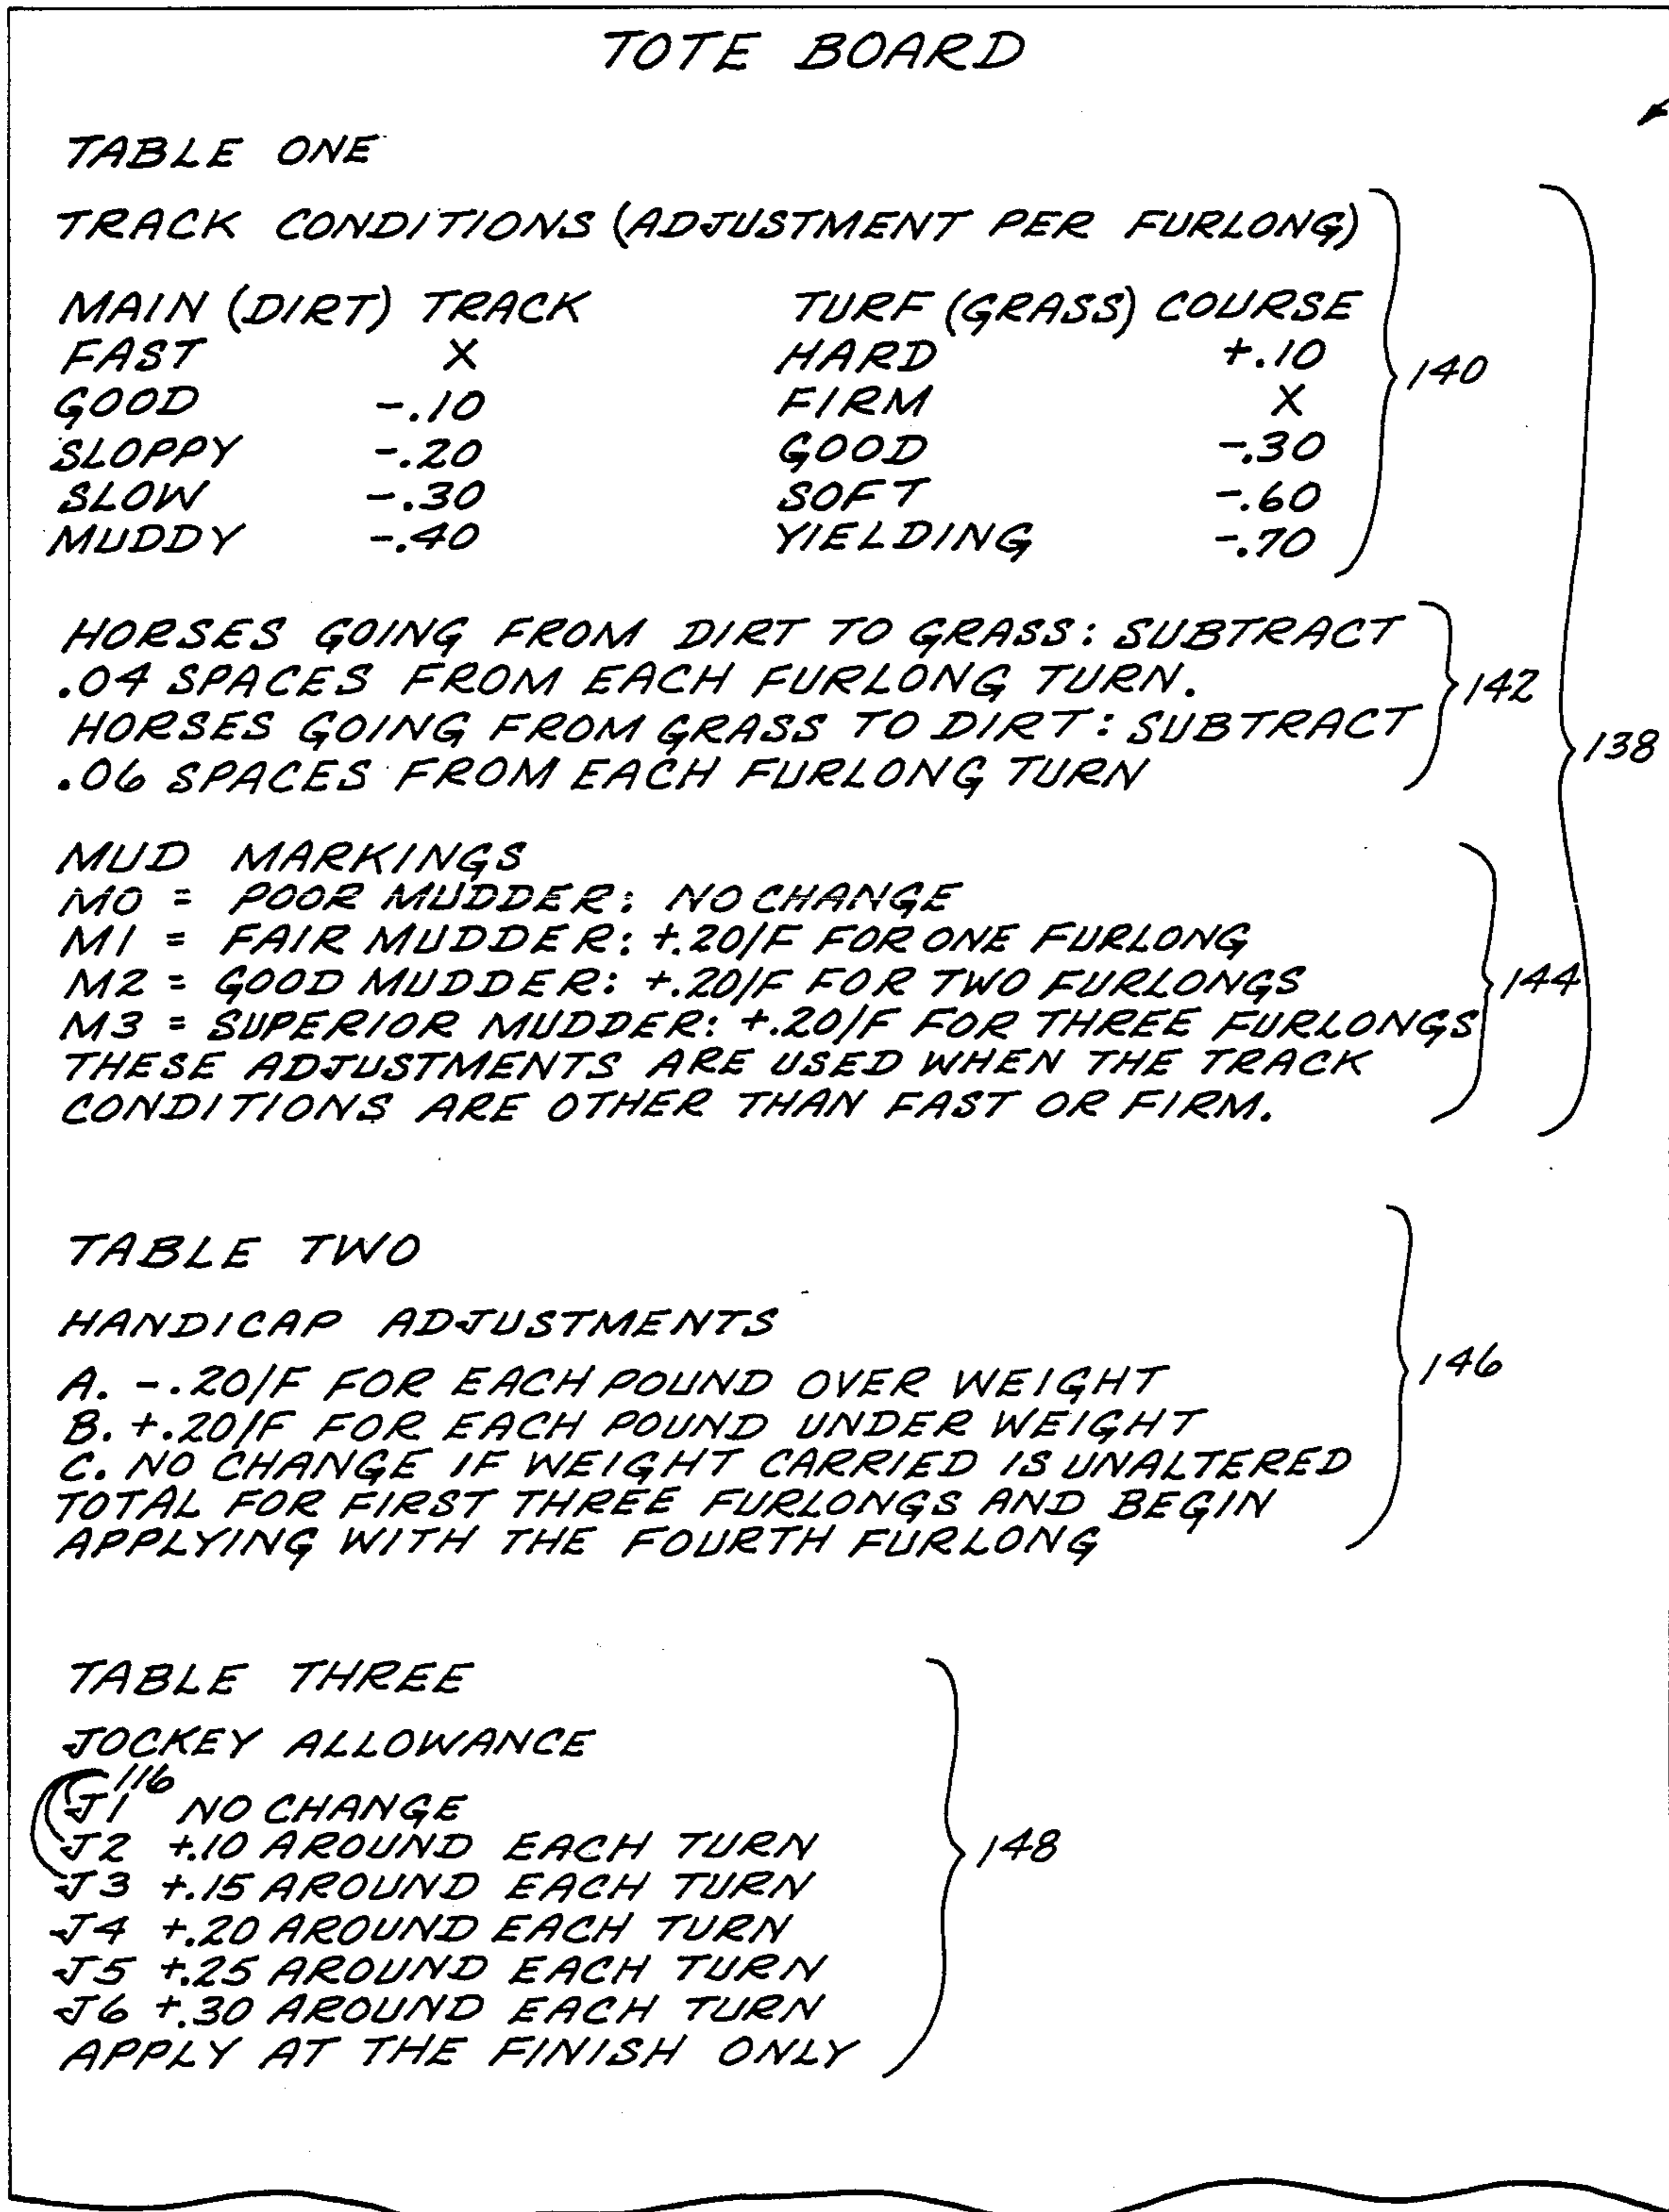 TOTE BOARD
TABLE ONE
TRACK CONDITIONS (ADJUSTMENT PER FURLONG)
MAIN (DIRT) TRACK TURF (GRASS) COURSE
FAST X HARD +.10
GOOD -.10 FIRM X
SLOPPY -.20 GOOD -.30
SLOW -.30 SOFT -.60
MUDDY -.40 YIELDING -.70
140
HORSES GOING FROM DIRT TO GRASS: SUBTRACT
.04 SPACES FROM EACH FURLONG TURN.
HORSES GOING FROM GRASS TO DIRT: SUBTRACT
.06 SPACES FROM EACH FURLONG TURN
142
138
MUD MARKINGS
M0 = POOR MUDDER: NO CHANGE
M1 = FAIR MUDDER: +.20/F FOR ONE FURLONG
M2 = GOOD MUDDER: +.20/F FOR TWO FURLONGS
M3 = SUPERIOR MUDDER: +.20/F FOR THREE FURLONGS
THESE ADJUSTMENTS ARE USED WHEN THE TRACK
CONDITIONS ARE OTHER THAN FAST OR FIRM.
144
TABLE TWO
HANDICAP ADJUSTMENTS
A. -.20/F FOR EACH POUND OVER WEIGHT
B. +.20/F FOR EACH POUND UNDER WEIGHT
C. NO CHANGE IF WEIGHT CARRIED IS UNALTERED
TOTAL FOR FIRST THREE FURLONGS AND BEGIN
APPLYING WITH THE FOURTH FURLONG
146
TABLE THREE
JOCKEY ALLOWANCE
116
J1 NO CHANGE
J2 +.10 AROUND EACH TURN
J3 +.15 AROUND EACH TURN
J4 +.20 AROUND EACH TURN
J5 +.25 AROUND EACH TURN
J6 +.30 AROUND EACH TURN
APPLY AT THE FINISH ONLY
148